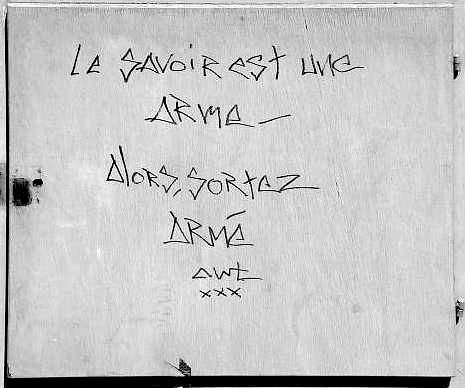 Le SAVOIR EST UNE
ARME —
Alors, SORTEZ
ARMÉ
awt
xxx